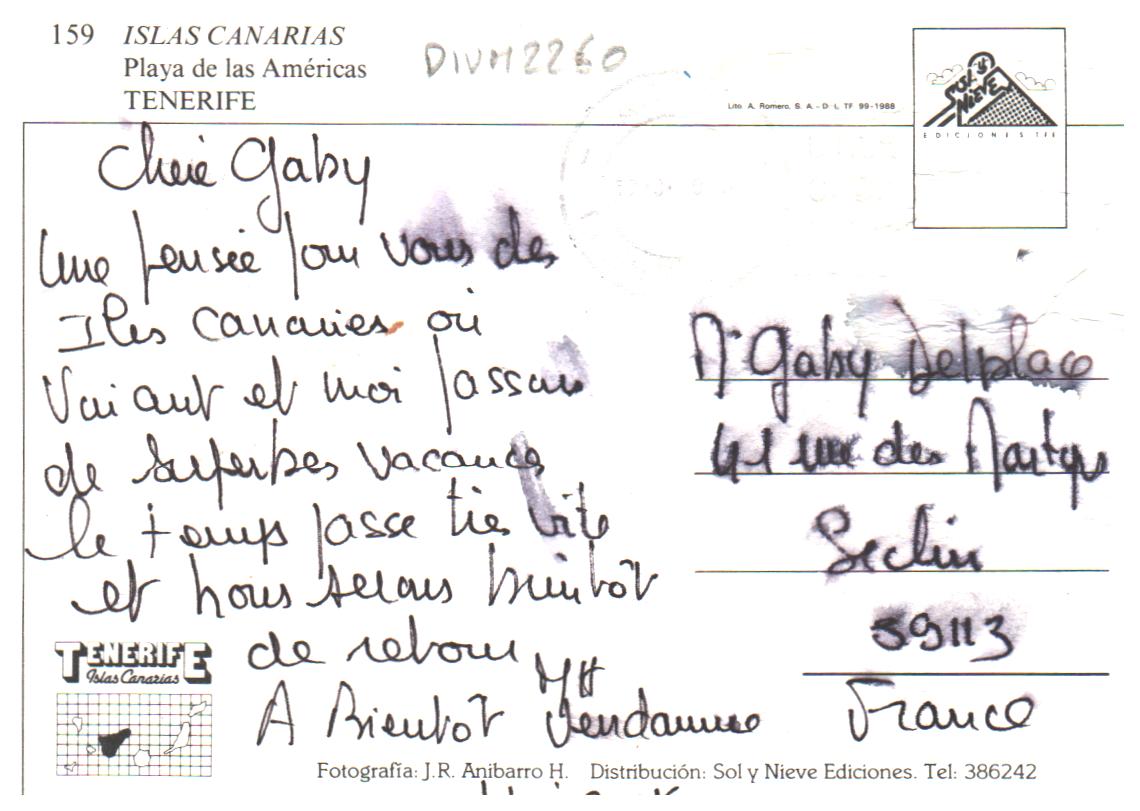 159 ISLAS CANARIAS
Playa de las Américas
TENERIFE
DIVM2260
Lito. A. Romero, S. A. - D. L. TF 99-1988
SOL Y NIEVE
EDICIONES TFE
Chère Gaby
Une pensée pour vous des
Iles canaries où
Vaiant et moi passons
de superbes vacances
le temps passe très vite
et nous serons bientôt
de retour
A Bientôt
Vendamme
Gaby Delplace
41 rue des Martyrs
Seclin
59113
France
TENERIFE
Islas Canarias
Fotografía: J.R. Anibarro H. Distribución: Sol y Nieve Ediciones. Tel: 386242